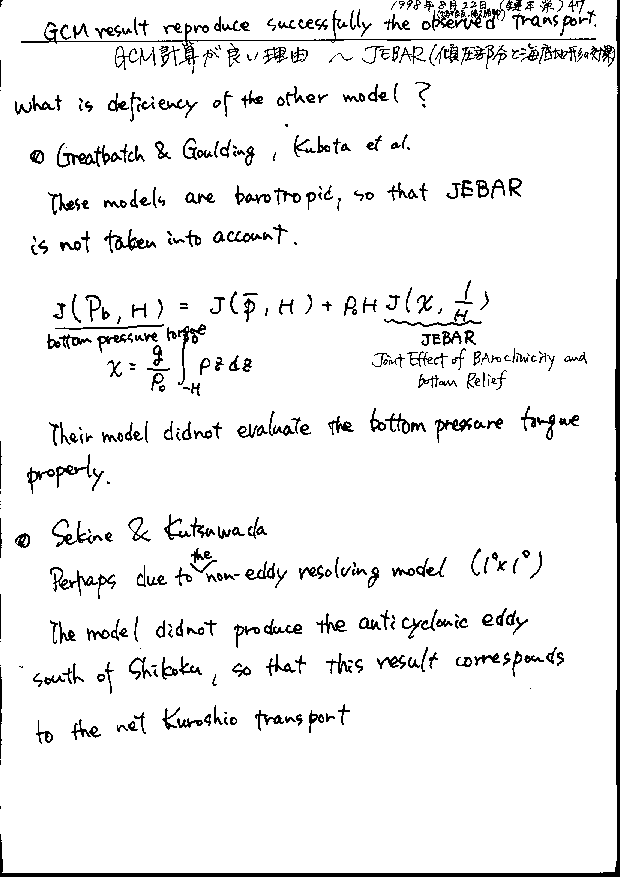 1998年8月22日 47
GCM result reproduce successfully the observed transport.
GCM計算が良い理由 ~ JEBAR(傾圧部分と海底地形の効果)
What is deficiency of the other model ?
Greatbatch & Goulding, Kubota et al.
These models are barotropic, so that JEBAR
is not taken into account.
J(Pb, H) = J(p̄, H) + ρ₀H J(χ, 1/H)
bottom pressure torque
JEBAR
χ = g/ρ₀ ∫_{-H}^{0} ρzdz
Joint Effect of BAroclinicity and
bottom Relief
Their model didnot evaluate the bottom pressure torque
properly.
Sekine & Kutsuwada
Perpaps due to the non-eddy resolving model (1°×1°)
The model didnot produce the anticyclonic eddy
south of Shikoku, so that this result corresponds
to the net Kuroshio transport